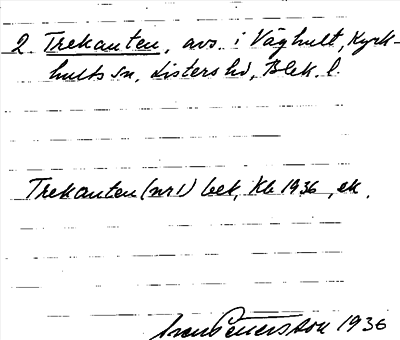 2. Trekanten, avs. i Våghult, Kyrk-
hults sn, Listers hd, Blek. l.
Trekanten (nr 1) bet, Kb 1936, ek.
Sven Petersson 1936